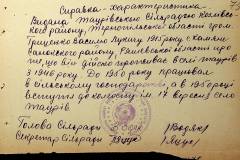 Справка-характеристика
Видана Таурівською Сільрадою Козівсь-
кого району, Тернопільської області гром.
Гриценко Василь Лукича 1915 року с.
району, області про
те, що він дійсно проживає в селі Таурів
з 1946 року. До 1950 року працював
в сільському господарстві, а в 1950 році
вступив до колгоспу ім 17 вересня село
Таурів.
Голова Сільради
Секретар Сільради